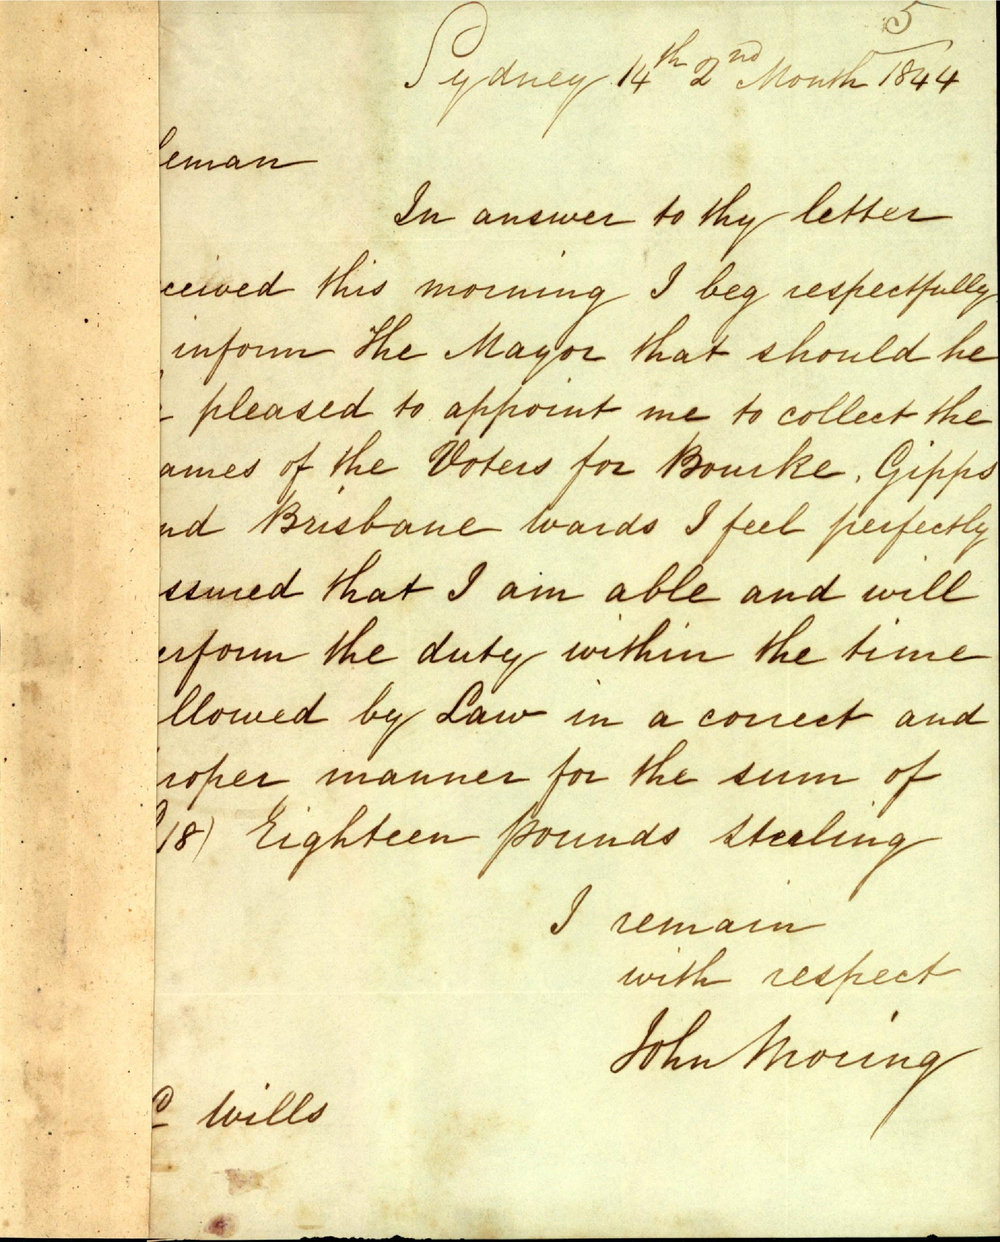 5
Sydney 14th 2nd Month 1844
leman
In answer to thy letter
ceived this morning I beg respectfully
inform the Mayor that should he
pleased to appoint me to collect the
ames of the Voters for Bourke, Gipps
nd Brisbane wards I feel perfectly
ssured that I am able and will
erform the duty within the time
llowed by Law in a correct and
roper manner for the sum of
18) Eighteen pounds sterling
I remain
with respect
John Moring
Wills